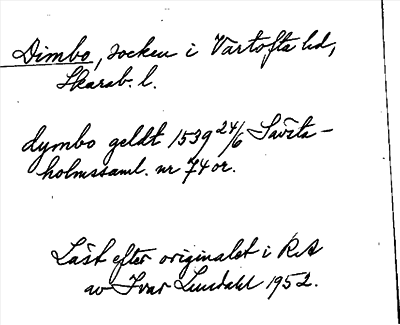 Dimbo, socken i Vartofta hd,
Skarab. l.
dymbo geldt 1539 24/6 Säfsta-
holmssaml. nr 74 or.
Läst efter originalet i RA
av Ivar Lundahl 1952.